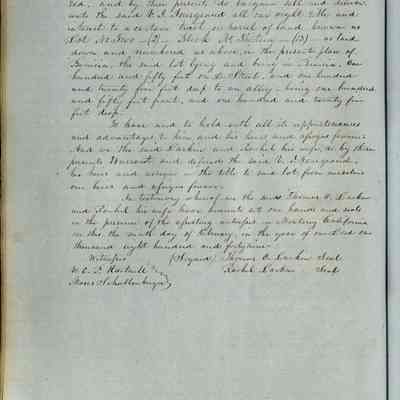 and by these presents do bargain sell and deliver
unto the said V. J. Fourgeaud all our right title and
interest to a certain tract or parcel of land known as
Lot No Two (2) Block No Thirteen (13) as laid
down and numbered as above, in the present plan of
Benicia, the said lot lying and being in Benicia. One
hundred and fifty feet on Street, and one hundred
and twenty five feet deep to an alley, being one hundred
and fifty feet front, and one hundred and twenty five
feet deep.
To have and to hold with all its appurtenances
and advantages to him and his heirs and assigns forever.
And we the said Larkin and Rachel his wife, do by these
presents Warrant and defend the said V. J. Fourgeaud,
his heirs and assigns in the title to said lot from ourselves
our heirs and assigns forever.
In testimony whereof we the said Thomas O. Larkin
and Rachel his wife have hereunto set our hands and seals
in the presence of the subscribing witnesses in Monterey California
on this the ninth day of February, in the year of our Lord one
thousand eight hundred and forty nine.
Witnesses (Signed) Thomas O. Larkin Seal
W. E. P. Hartnell Rachel Larkin Seal
Moses Schallenberger